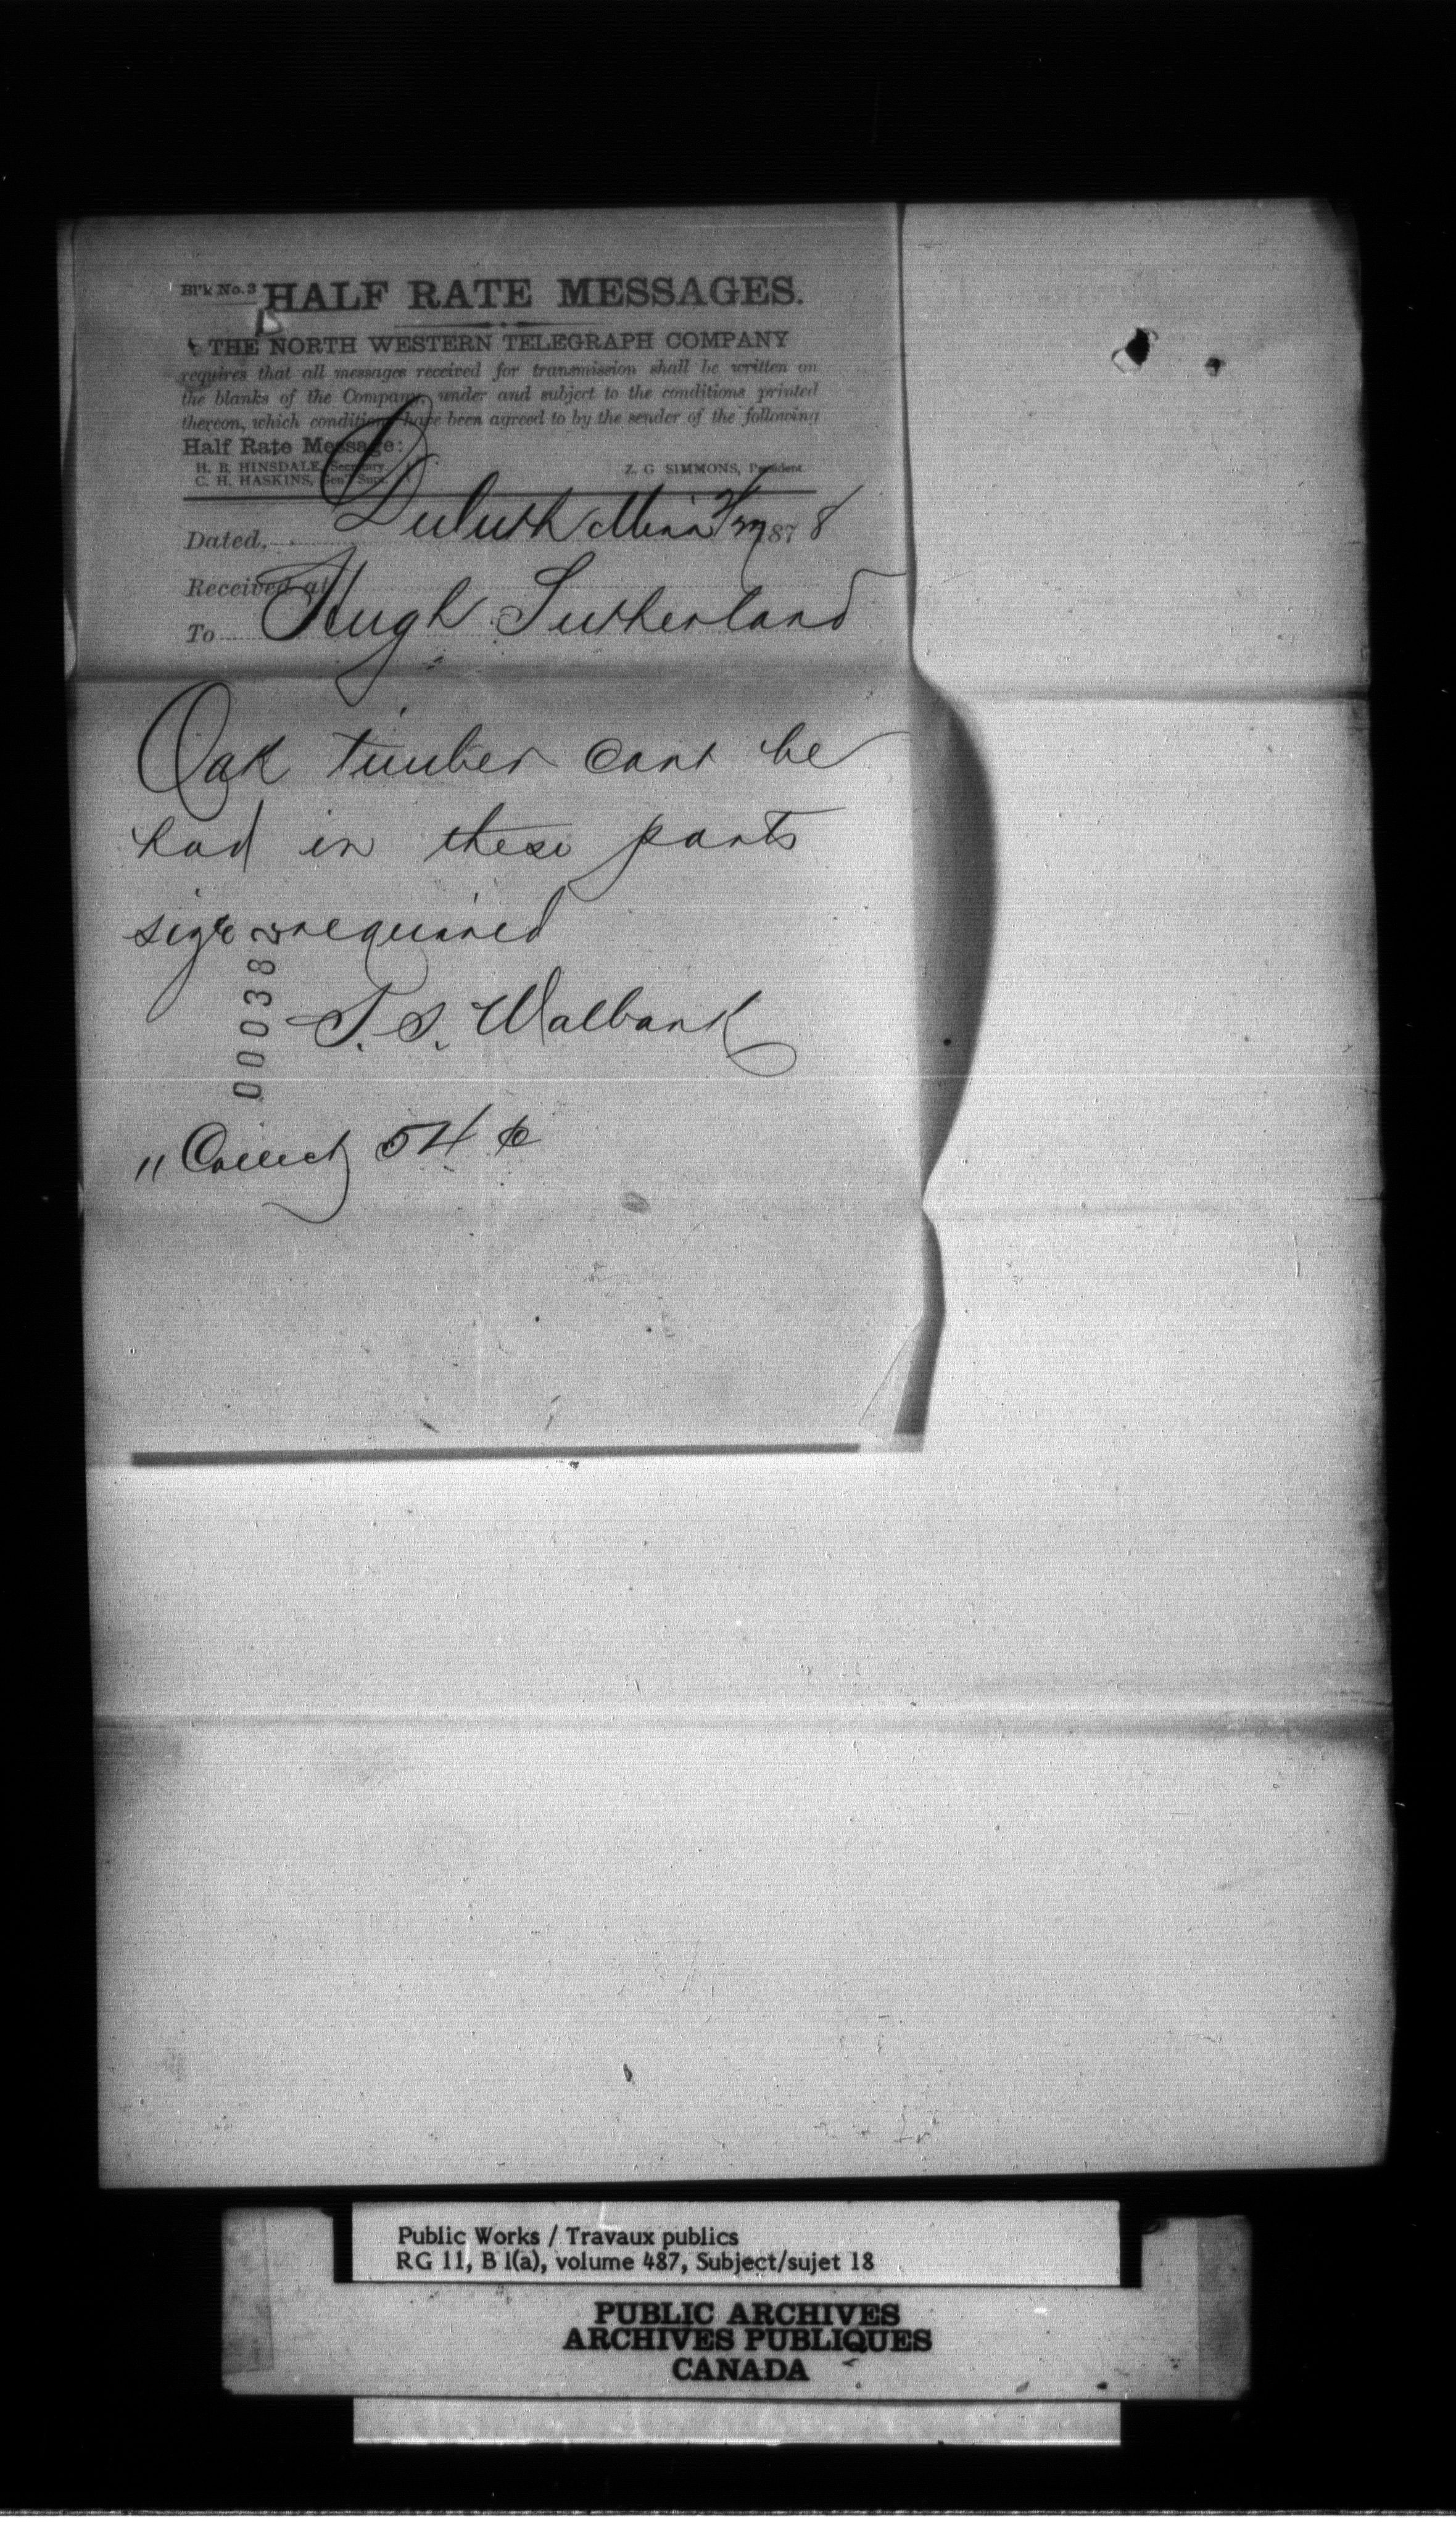 Bl'k No. 3 HALF RATE MESSAGES.
THE NORTH WESTERN TELEGRAPH COMPANY
requires that all messages received for transmission shall be written on
the blanks of the Company, under and subject to the conditions printed
thereon, which conditions have been agreed to by the sender of the following
Half Rate Message:
H. B. HINSDALE, Secretary. Z. G SIMMONS, President.
C. H. HASKINS, Gen'l Supt.
Dated, Duluth Minn 1878
Received at
To Hugh Sutherland
Oak timber cant be
had in these parts
size required
000382
T. S. Walbank
" Collect 54 ¢
Public Works / Travaux publics
RG 11, B 1(a), volume 487, Subject/sujet 18
PUBLIC ARCHIVES
ARCHIVES PUBLIQUES
CANADA